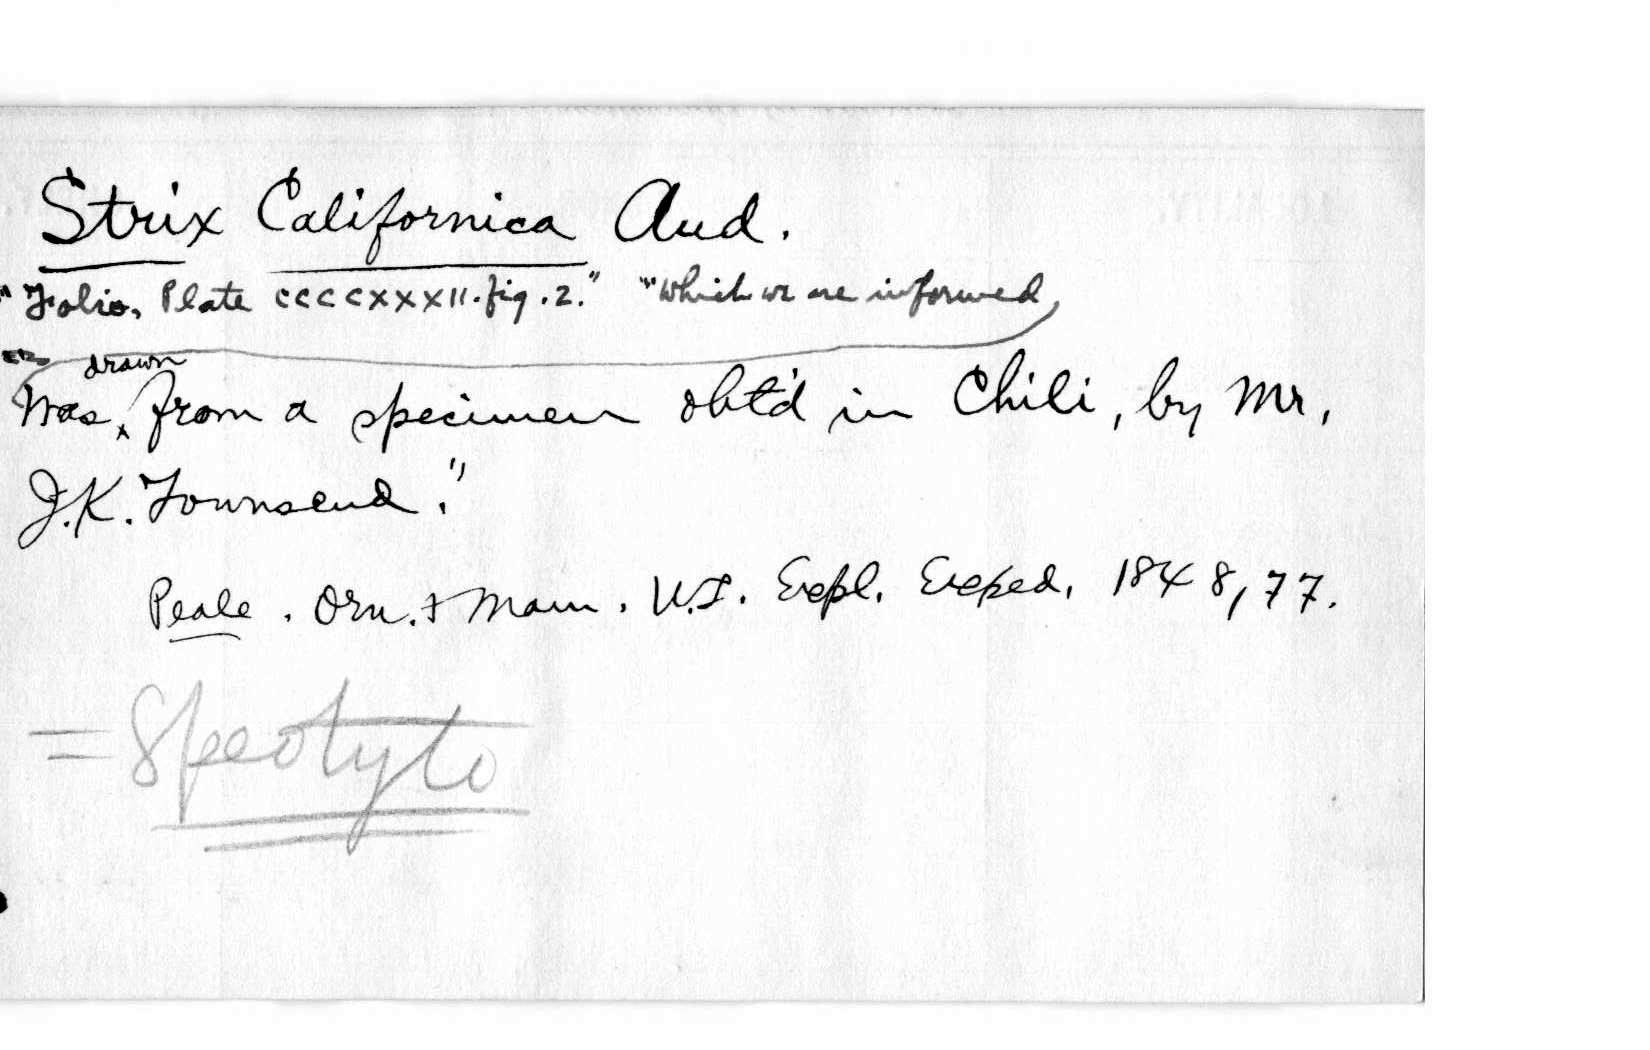 Strix Californica Aud.
"Folio, Plate CCCCXXXII. fig. 2." "which we are informed
drawn
was from a specimen obt'd in Chili, by Mr.
J.K. Townsend."
Peale. Orn. & Mam. U.S. Expl. Exped. 1848, 77.
= Speotyto